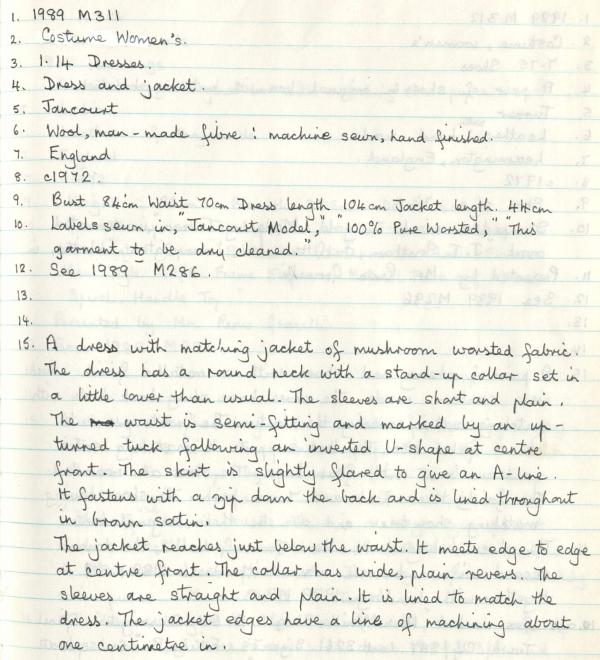 1. 1989 M311
2. Costume Women's.
3. 1.14 Dresses.
4. Dress and jacket.
5. Jancourt
6. Wool, man-made fibre: machine sewn, hand finished.
7. England
8. c1972.
9. Bust 84cm Waist 70cm Dress length 104cm Jacket length. 44cm
10. Labels sewn in, "Jancourt Model," "100% Pure Worsted," "This
garment to be dry cleaned."
12. See 1989 M286.
13.
14.
15. A dress with matching jacket of mushroom worsted fabric.
The dress has a round neck with a stand-up collar set in
a little lower than usual. The sleeves are short and plain.
The waist is semi-fitting and marked by an up-
turned tuck following an inverted U-shape at centre
front. The skirt is slightly flared to give an A-line.
It fastens with a zip down the back and is lined throughout
in brown satin.
The jacket reaches just below the waist. It meets edge to edge
at centre front. The collar has wide, plain revers. The
sleeves are straight and plain. It is lined to match the
dress. The jacket edges have a line of machining about
one centimetre in.